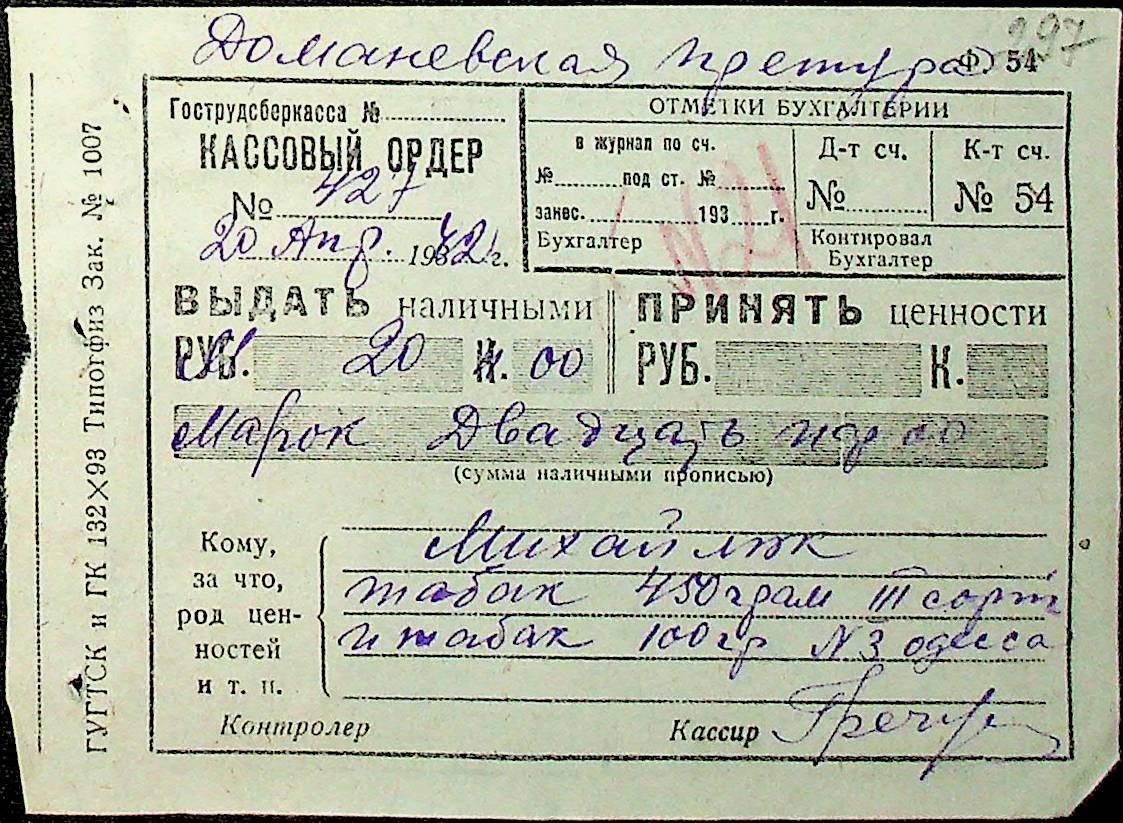 297
Доманевская претура
Ф. 54
Гострудсберкасса №
КАССОВЫЙ ОРДЕР
№ 427
20 Апр. 1942 г.
ОТМЕТКИ БУХГАЛТЕРИИ
в журнал по сч.
№ под ст. №
занес. 193 г.
Бухгалтер
Д-т сч.
№
К-т сч.
№ 54
Контировал
Бухгалтер
№ 21
ВЫДАТЬ наличными
РУБ. 20 К. 00
ПРИНЯТЬ ценности
РУБ. К.
Марок Двадцать 00
(сумма наличными прописью)
Кому,
за что,
род цен-
ностей
и т. п.
Михайлюк
табак 450 грам III сорт
и табак 100 гр N3 одесса
Контролер
Кассир
ГУГТСК и ГК 132×93 Типогфиз Зак. № 1007